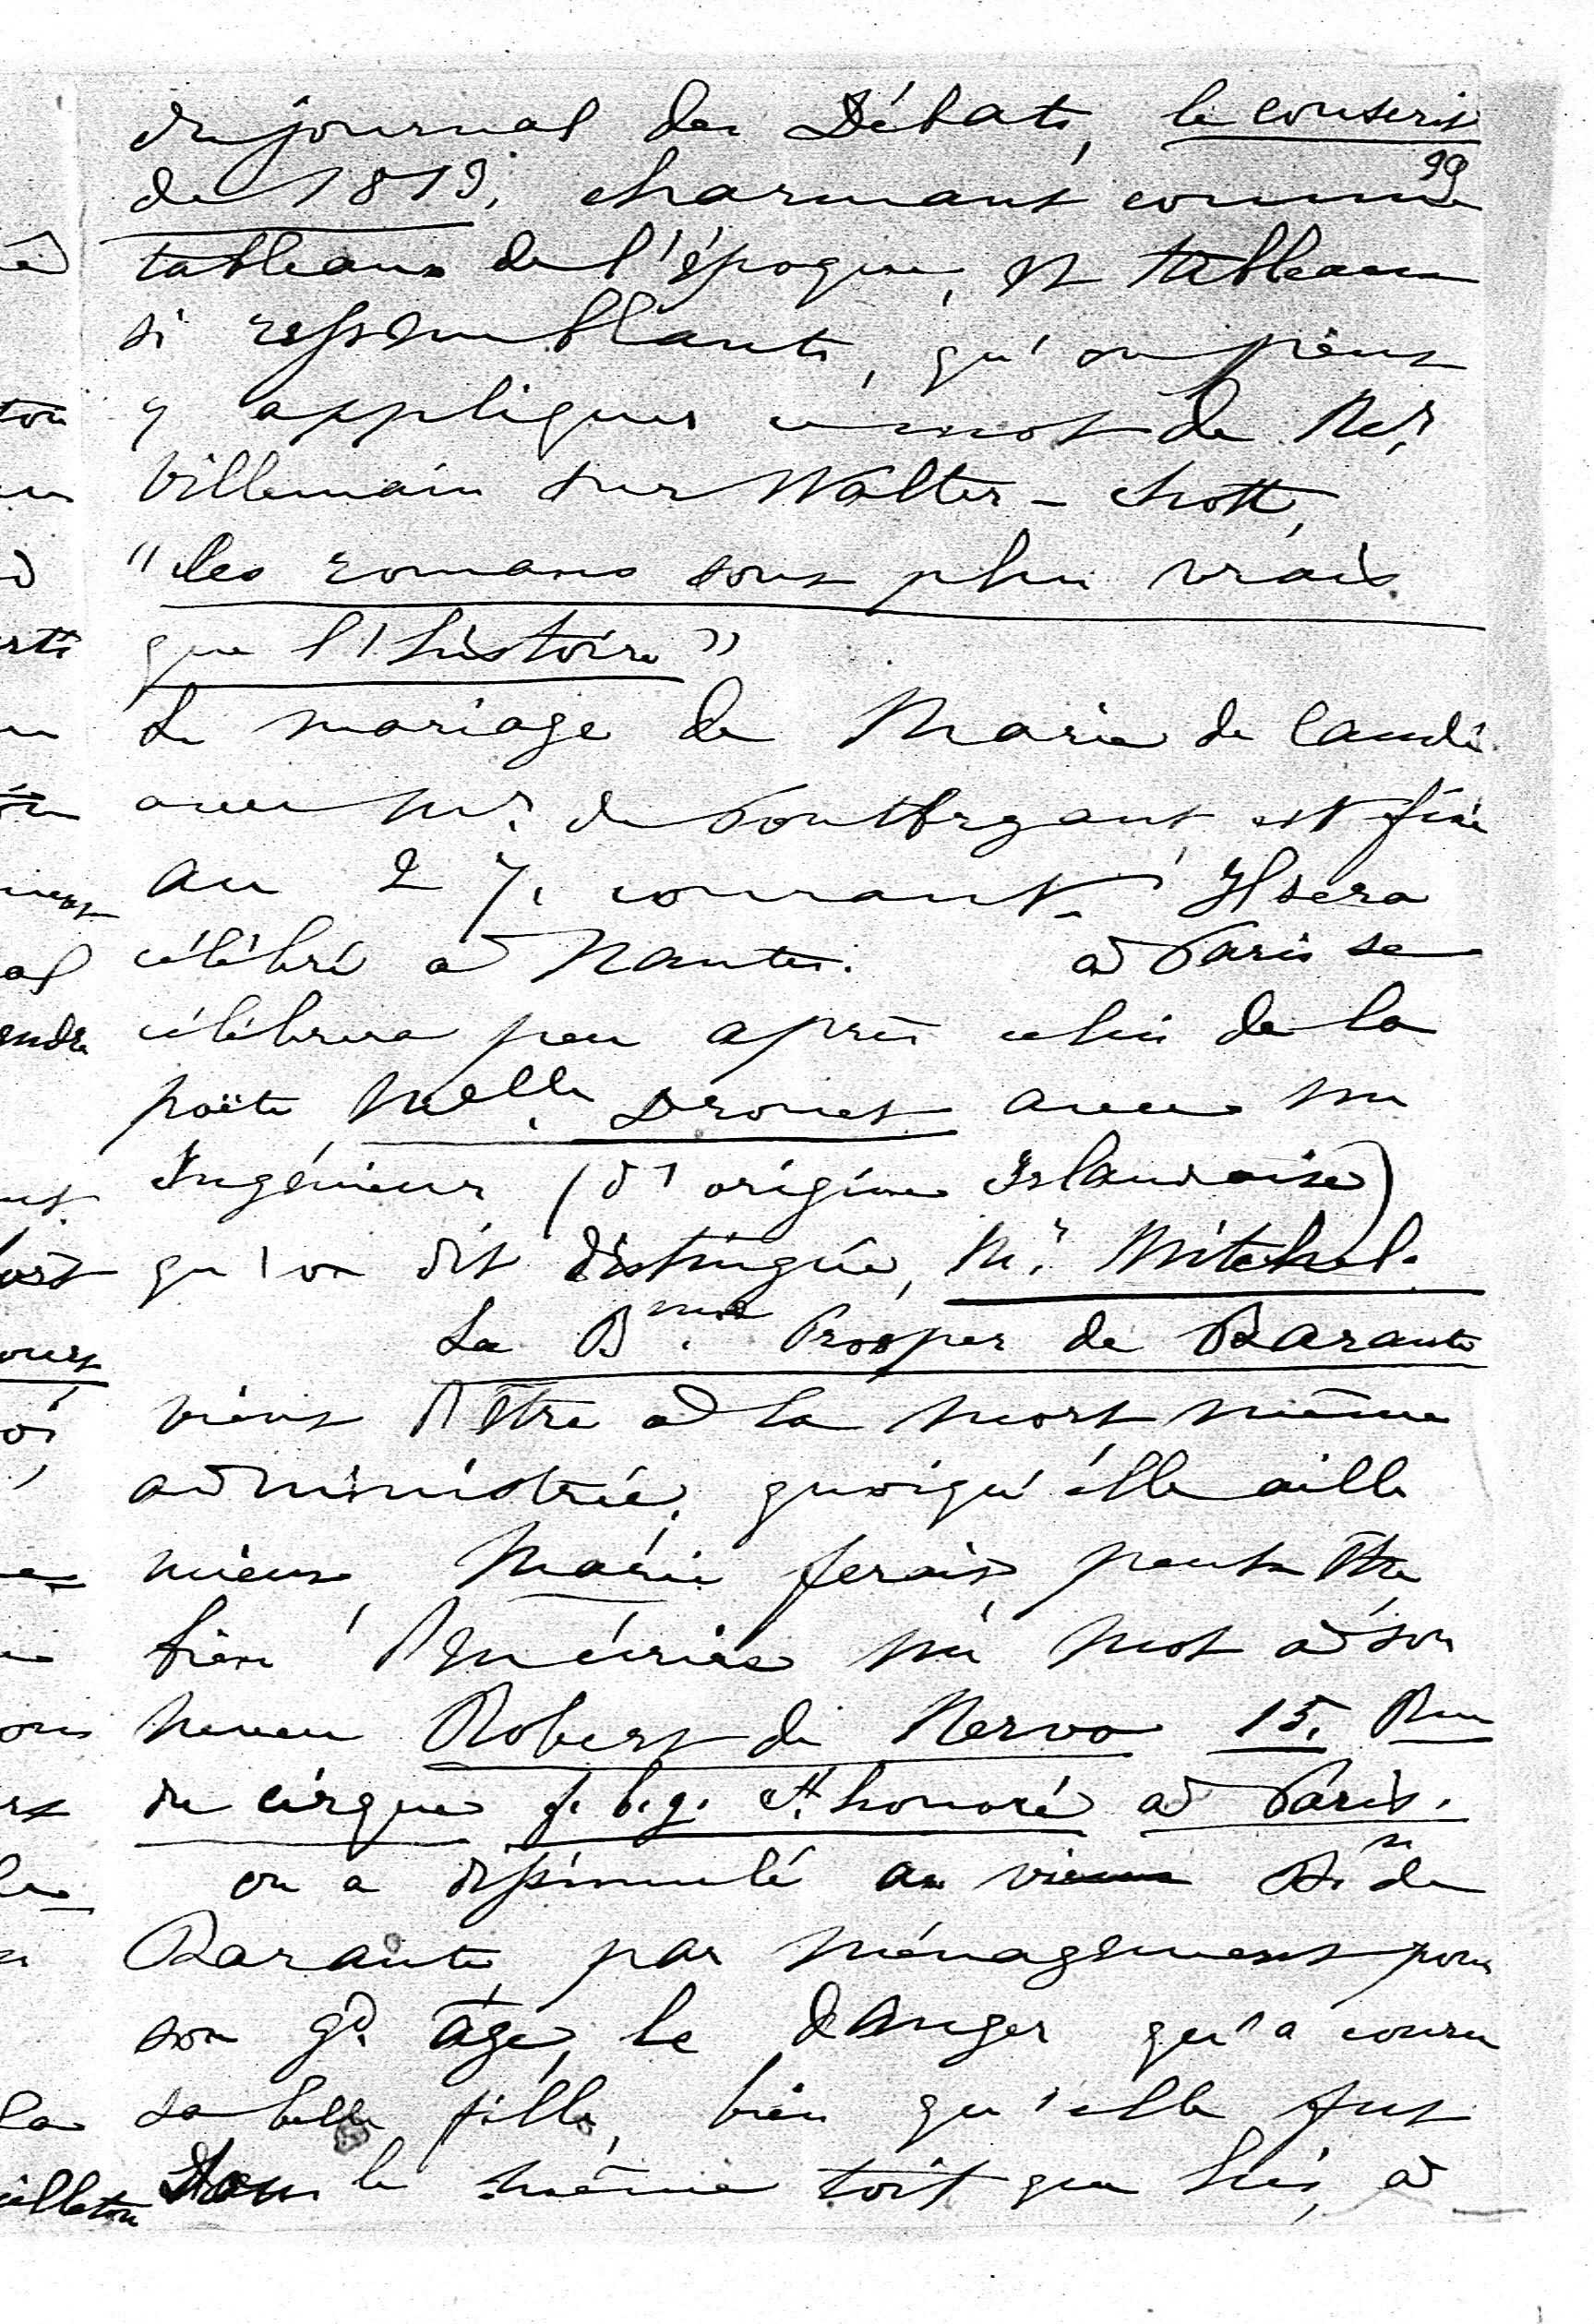 du journal des Débats, le conscrit
99
de 1813, charmant comme
tableaux de l'époque, et tableaux
si ressemblants, qu'on peut
y appliquer ce mot de Mr.
Villemain sur Walter-Scott,
"les romans sont plus vrais
que l'histoire"
Le mariage de Marie de Candé
avec Mr. de Pontbryant est fixé
au 27. courant. Il sera
célébré à Nantes. à Paris se
célébrera peu après celui de la
poëte Melle. Drouet avec un
Ingénieur (d'origine Irlandaise)
qu'on dit distingué, Mr. Mitchel.
La Bnne. Prosper de Barante
vient d'être à la mort même
administrée, quoiqu'elle aille
mieux, Marie ferait peut être
bien d'écrire un mot à son
neveu Robert de Nervo 15. Rue
du cirque f.b.g. St. honoré à Paris.
on a dissimulé au vieux Bn de
Barante, par ménagement pour
son gd. âge, le danger qu'a couru
sa belle fille, bien qu'elle fut
sous le même toit que lui, à